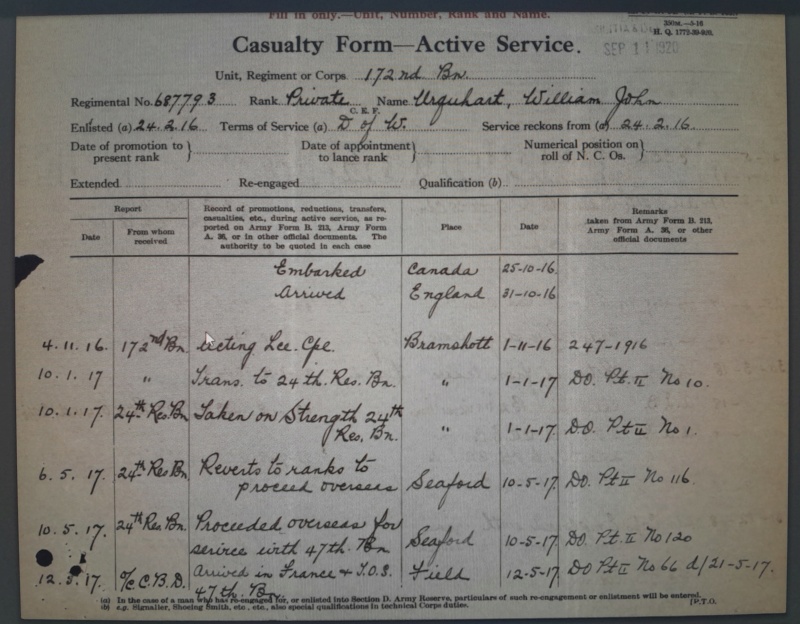 Fill in only.—Unit, Number, Rank and Name.
350M.—5-16
H. Q. 1772-39-920.
SEP 11 1920
Casualty Form—Active Service.
Unit, Regiment or Corps 172nd Bn.
Regimental No. 687793 Rank Private Name Urquhart, William John
C. E. F.
Enlisted (a) 24.2.16 Terms of Service (a) D of W. Service reckons from (a) 24.2.16
Date of promotion to present rank } Date of appointment to lance rank } Numerical position on roll of N. C. Os. }
Extended Re-engaged Qualification (b)
Report
Date From whom received
Record of promotions, reductions, transfers, casualties, etc., during active service, as reported on Army Form B. 213, Army Form A. 36, or in other official documents. The authority to be quoted in each case
Place Date
Remarks taken from Army Form B. 213, Army Form A. 36, or other official documents
Embarked Canada 25-10-16.
Arrived England 31-10-16
4.11.16. 172nd Bn Acting Lce. Cpl. Bramshott 1-11-16 247-1916
10.1.17 " Trans. to 24th. Res. Bn. " 1-1-17 DO. Pt. II No 10.
10.1.17. 24th Res. Bn Taken on Strength 24th Res. Bn. " 1-1-17. DO. Pt II No 1.
6.5.17. 24th Res Bn. Reverts to ranks to proceed overseas Seaford 10-5-17. DO. Pt II No 116.
10.5.17. 24th Res. Bn. Proceeded overseas for service with 47th. Bn Seaford 10-5-17. DO. Pt. II No 120
12.5.17. O/c C.B.D. Arrived in France & T.O.S. 47th. Bn. Field 12-5-17. DO Pt II No 66 d/21-5-17.
(a) In the case of a man who has re-engaged for, or enlisted into Section D. Army Reserve, particulars of such re-engagement or enlistment will be entered.
(b) e.g. Signaller, Shoeing Smith, etc., etc., also special qualifications in technical Corps duties. [P.T.O.